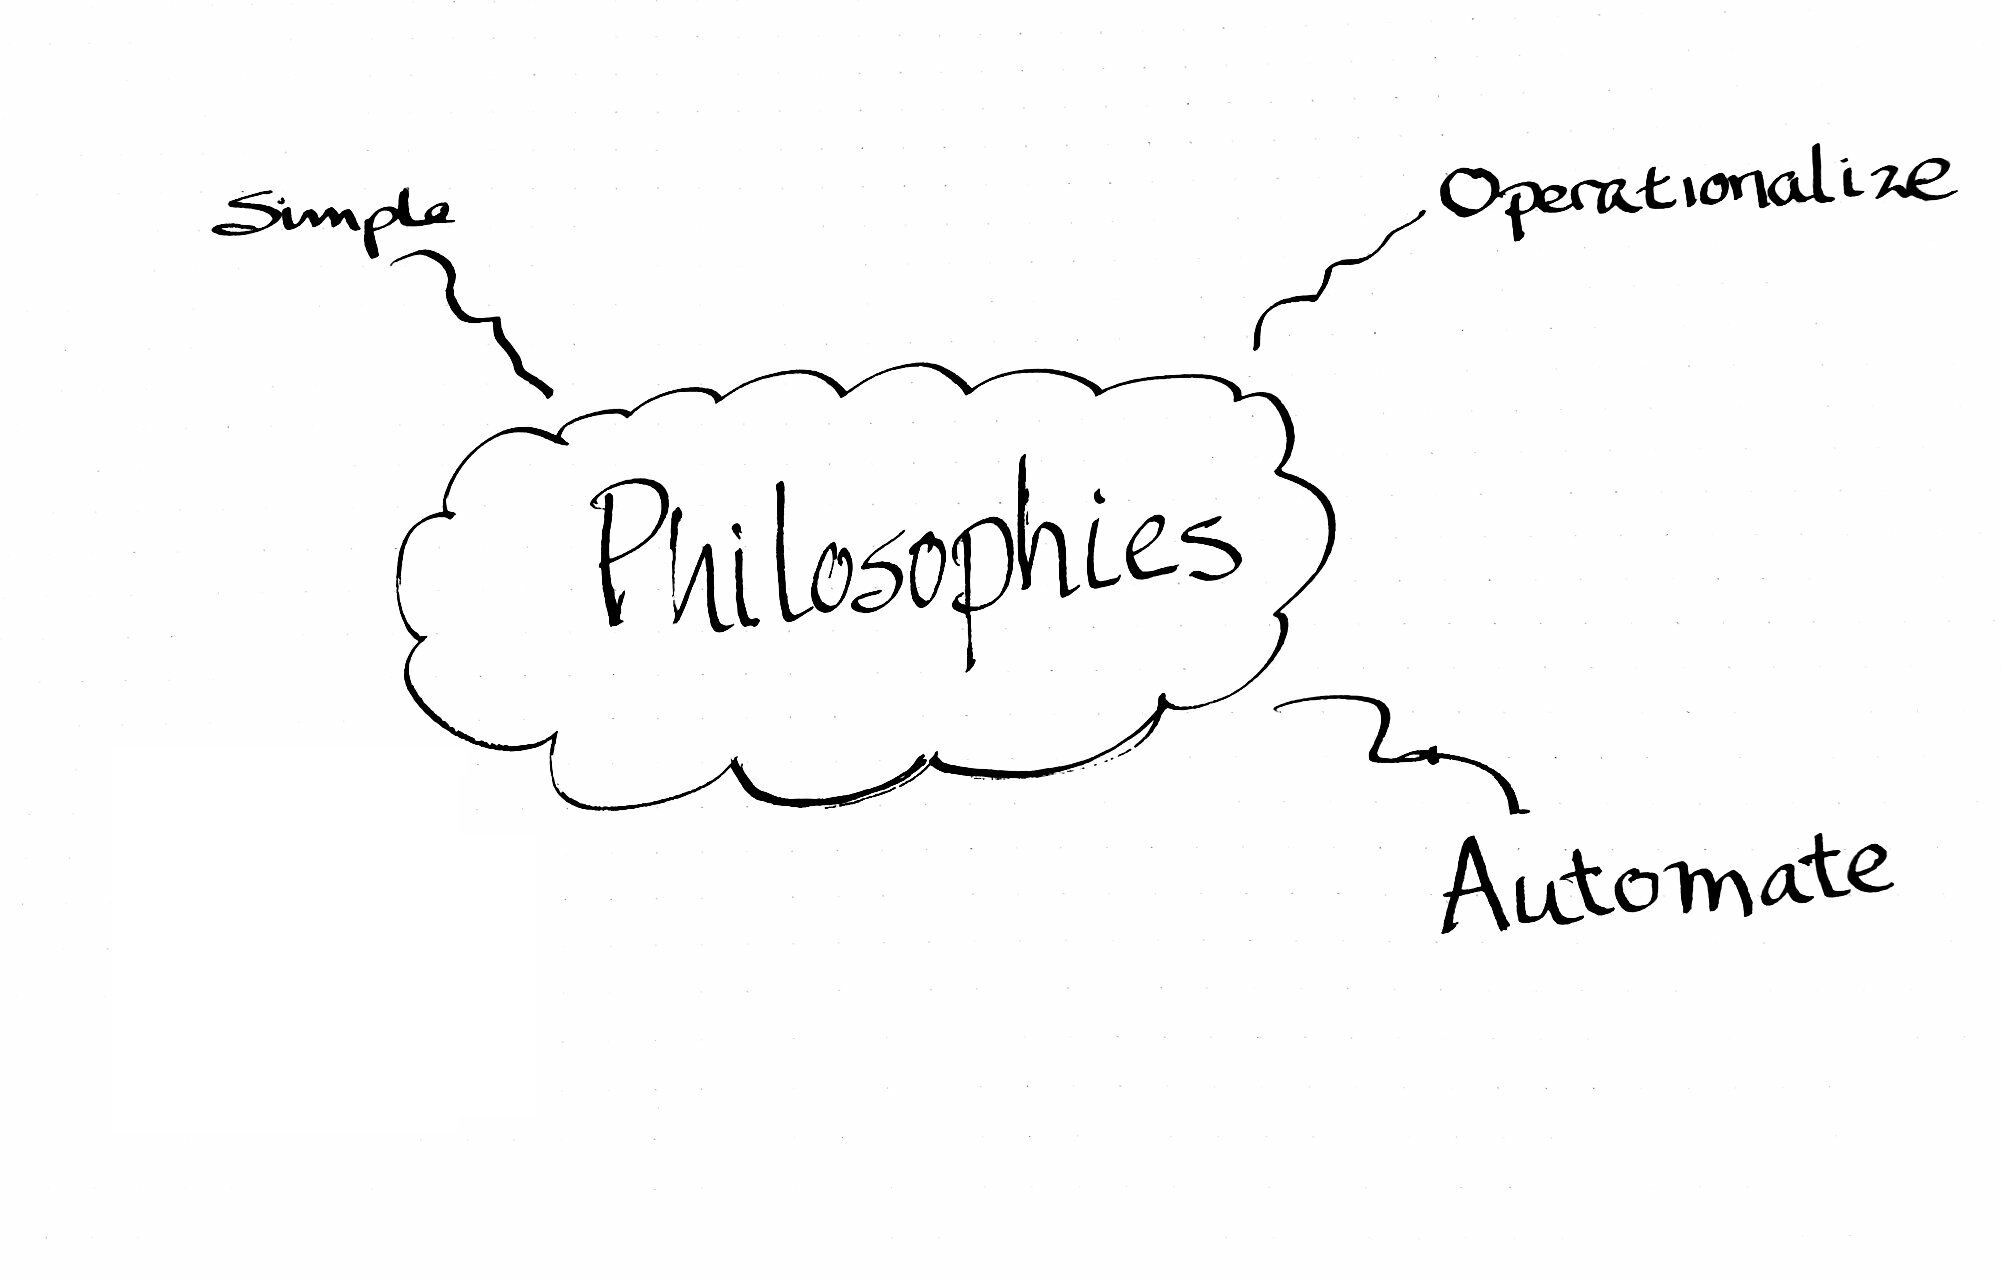 Simple
Operationalize
Philosophies
Automate